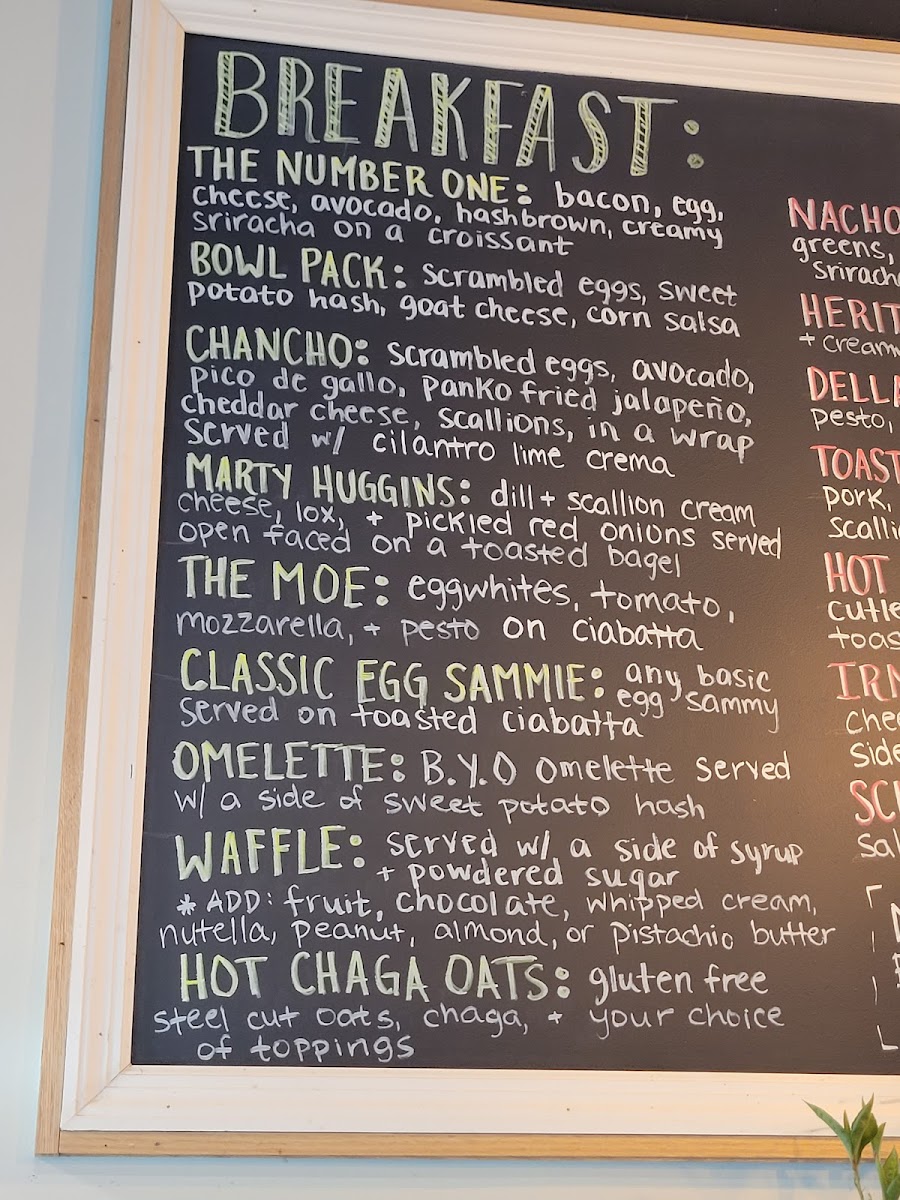 BREAKFAST:
THE NUMBER ONE: bacon, egg,
cheese, avocado, hashbrown, creamy
sriracha on a croissant
BOWL PACK: scrambled eggs, sweet
potato hash, goat cheese, corn salsa
CHANCHO: scrambled eggs, avocado,
pico de gallo, panko fried jalapeño,
cheddar cheese, scallions, in a wrap
served w/ cilantro lime crema
MARTY HUGGINS: dill + scallion cream
cheese, lox, + pickled red onions served
open faced on a toasted bagel
THE MOE: eggwhites, tomato,
mozzarella, + pesto on ciabatta
CLASSIC EGG SAMMIE: any basic
egg sammy
served on toasted ciabatta
OMELETTE: B.Y.O omelette served
w/ a side of sweet potato hash
WAFFLE: served w/ a side of syrup
+ powdered sugar
* ADD: fruit, chocolate, whipped cream,
nutella, peanut, almond, or pistachio butter
HOT CHAGA OATS: gluten free
steel cut oats, chaga, + your choice
of toppings
NACHO
greens,
HERIT
+ cream
DELLA
pesto,
TOAST
pork,
HOT
side